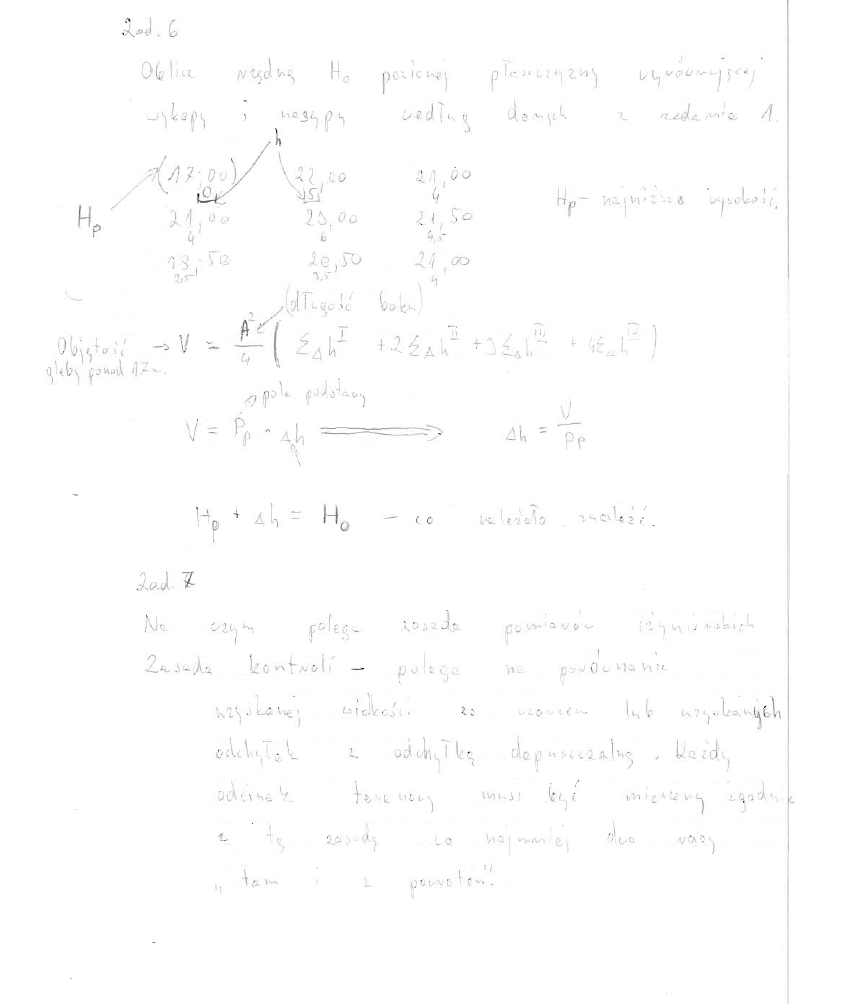 Zad. 6
Oblicz rzędną H₀ poziomej płaszczyzny wyrównującej
wykopy i nasypy według danych z zadania 1.
h
(17,00) 22,00 21,00
0 5 4
Hp
21,00 23,00 21,50
4 6 4,5
Hp - najniższa wysokość.
19,50 20,50 21,00
2,5 3,5 4
(długość boku)
Objętość → V = A²/4 ( ΣΔh^I + 2ΣΔh^II + 3ΣΔh^III + 4ΣΔh^IV )
gleby ponad 17m.
pole podstawy
V = Pp · Δh ⟹ Δh = V/Pp
Hp + Δh = H₀ - co należało znaleźć.
Zad. 7
Na czym polega zasada pomiarów
Zasada kontroli - polega na porównanie
uzyskanej wielkości ze wzorcem lub uzyskanych
odchyłek z odchyłką dopuszczalną. Każdy
odcinek terenowy musi być mierzony zgodnie
z tą zasadą co najmniej dwa razy
„tam i z powrotem".